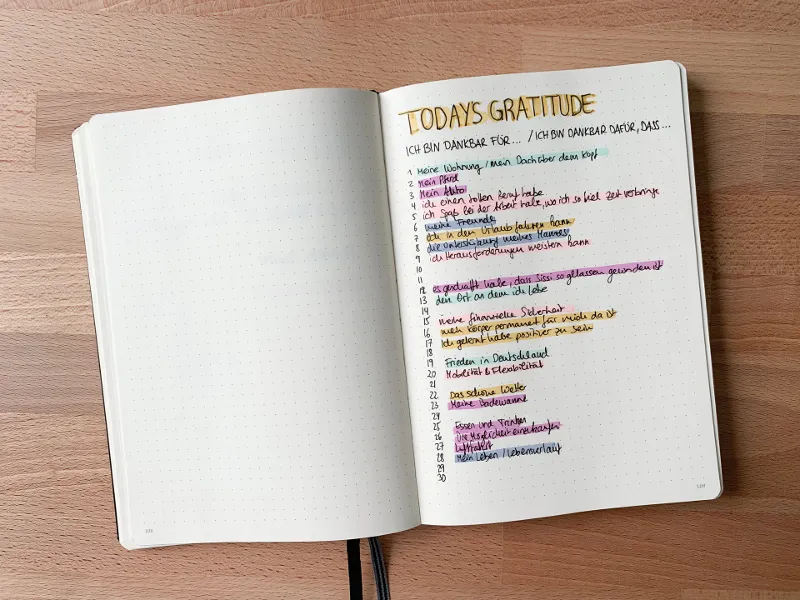 TODAY'S GRATITUDE
ICH BIN DANKBAR FÜR... / ICH BIN DANKBAR DAFÜR, DASS...
1 Meine Wohnung / mein Dach über dem Kopf
2 Mein Pferd
3 Mein Auto
4 ich einen tollen Beruf habe
5 ich Spaß bei der Arbeit habe, wo ich so viel Zeit verbringe
6 meine Freunde
7 Ich in den Urlaub fahren kann
8 die Unterstützung meines Mannes
9 ich Herausforderungen meistern kann
10
11
12 es geschafft habe, dass Sissi so gelassen geworden ist
13 den Ort an dem ich lebe
14
15 meine finanzielle Sicherheit
16 mein Körper permanent für mich da ist
17 Ich gelernt habe positiver zu sein
18
19 Frieden in Deutschland
20 Mobilität & Flexibilität
21
22 Das schöne Wetter
23 Meine Badewanne
24
25 Essen und Trinken
26 Die Möglichkeit einzukaufen
27
28 Mein Leben / Lebensverlauf
29
30